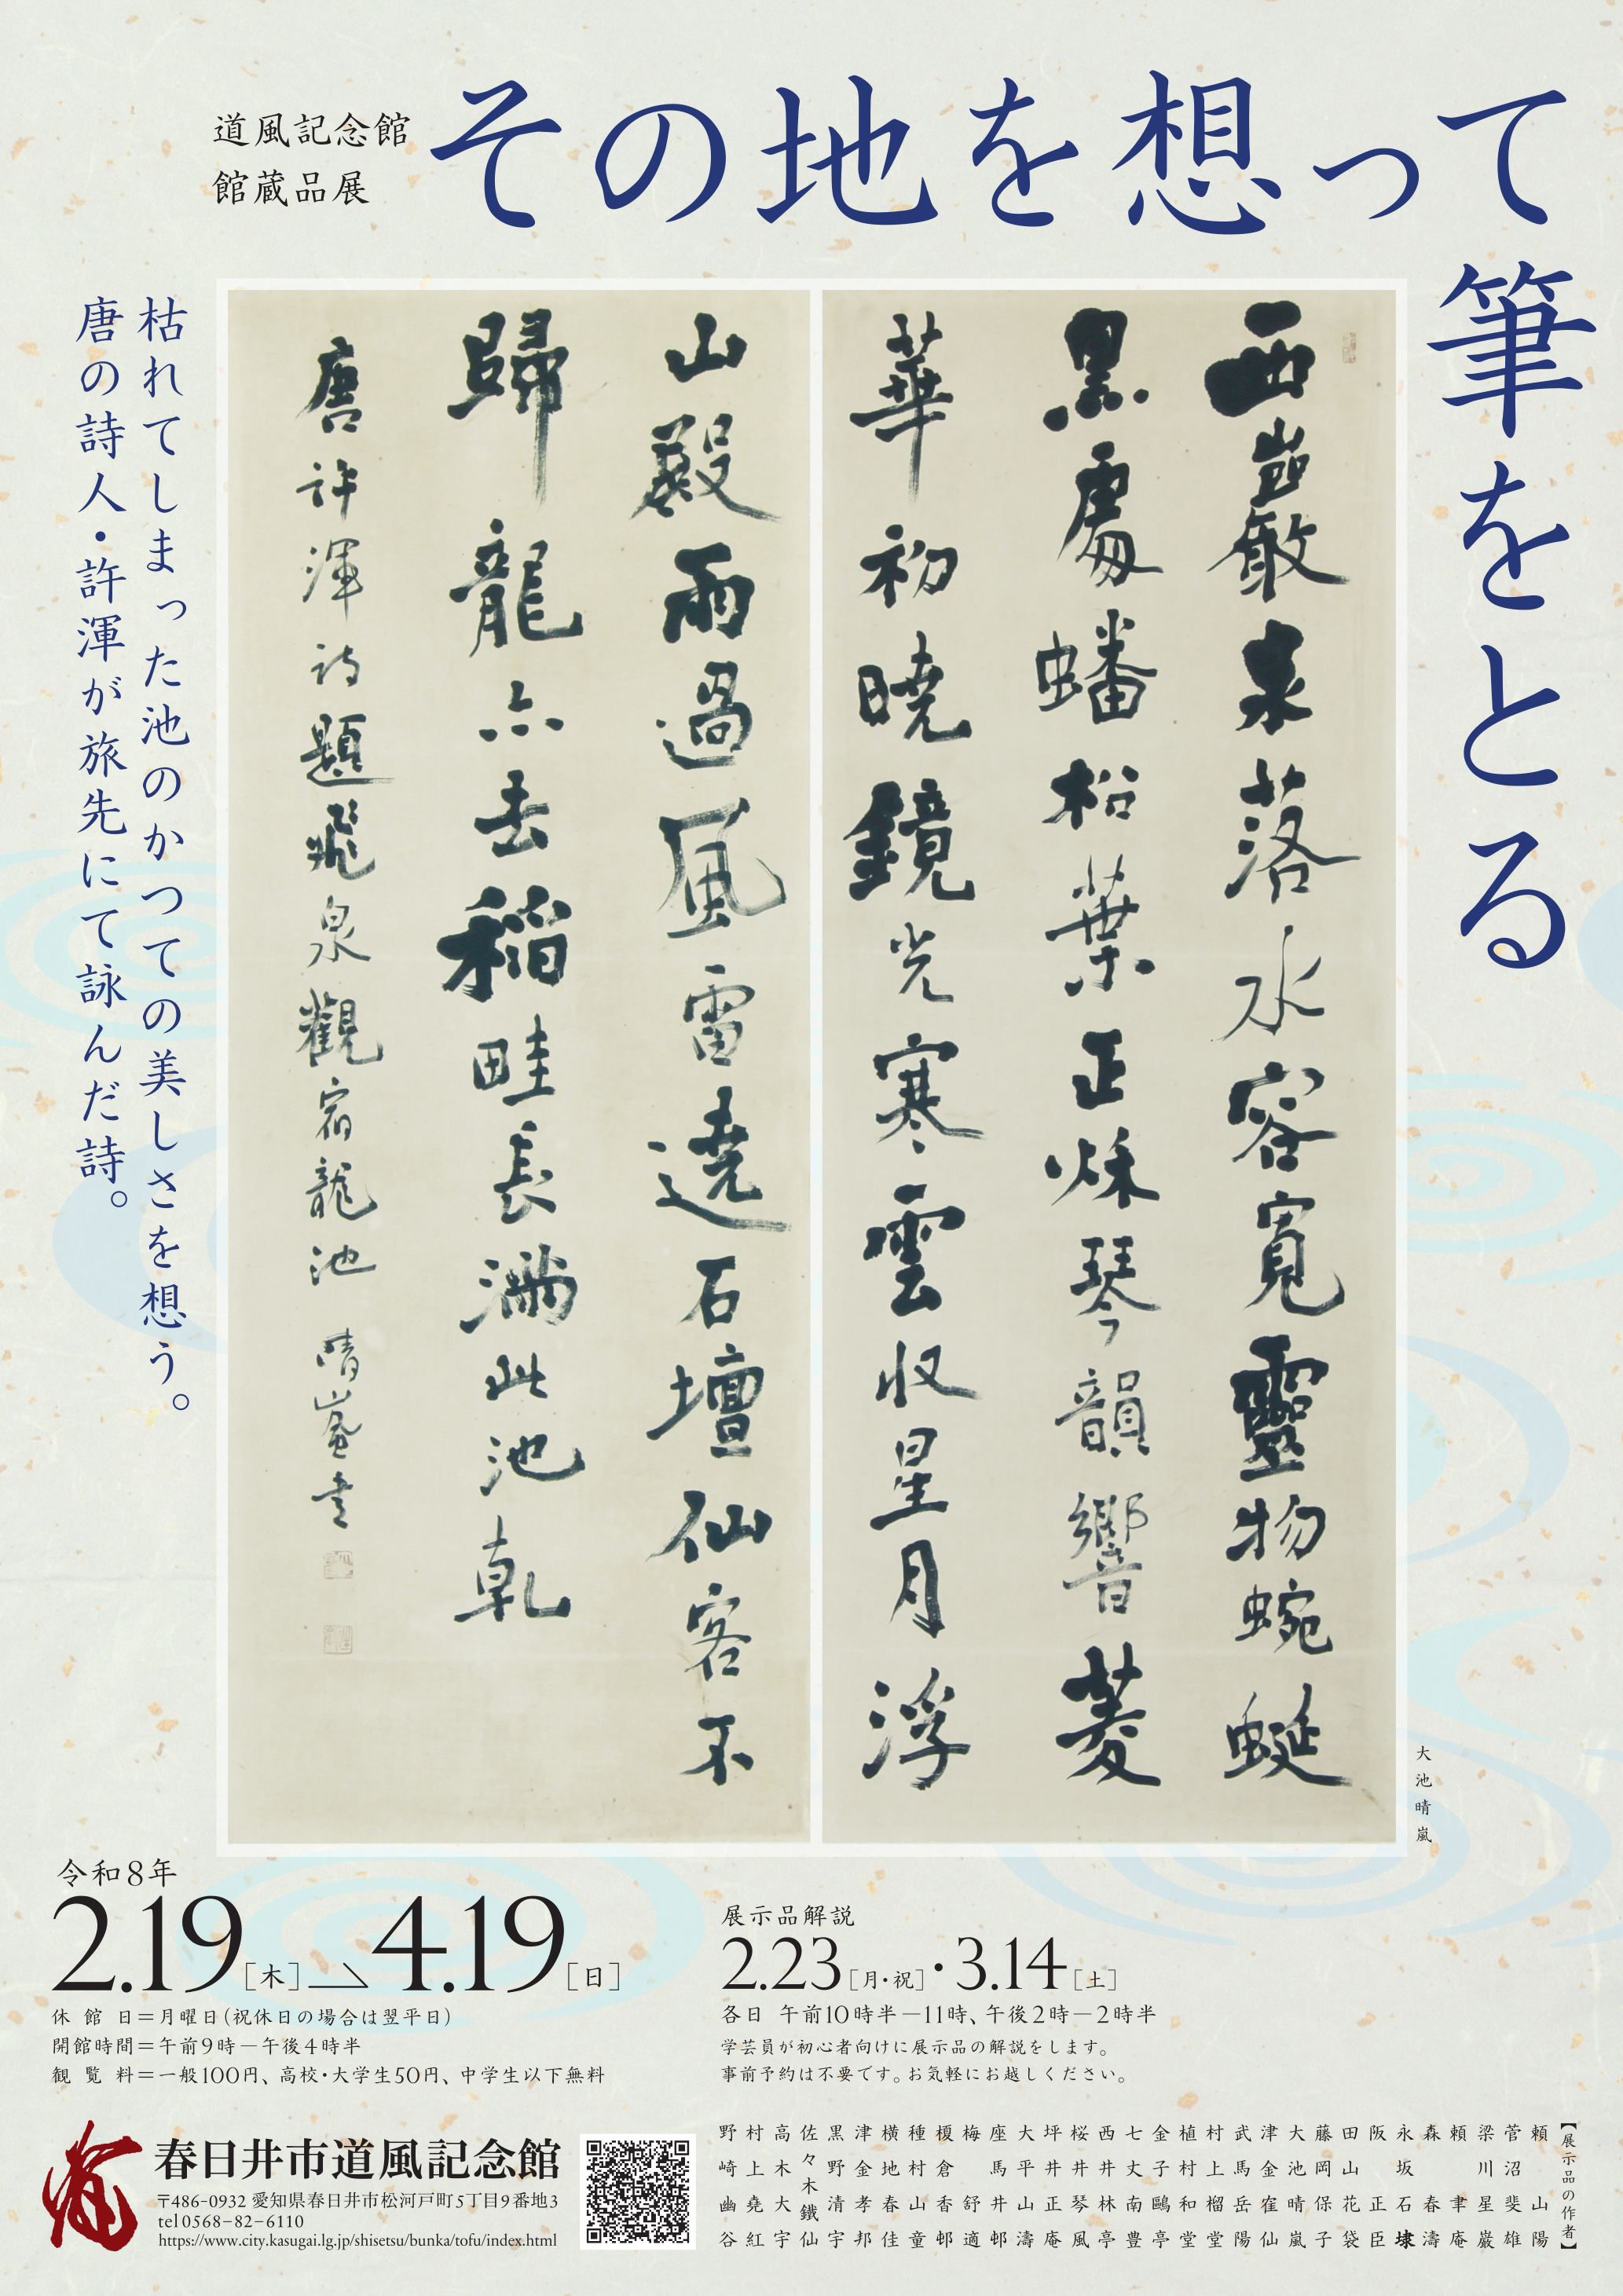 道風記念館
館蔵品展
その地を想って
筆をとる
西巖泉落水容寛靈物蜿蜒
黒處蟠松葉正秌琴韻響菱
華初曉鏡光寒雲収星月浮
山殿雨過風雷遶石壇仙客不
歸龍亦去稲畦長満此池乾
唐許渾詩題飛泉觀宿龍池 晴嵐書
大池晴嵐
枯れてしまった池のかつての美しさを想う。
唐の詩人・許渾が旅先にて詠んだ詩。
令和8年
2.19[木]→4.19[日]
休館日＝月曜日（祝休日の場合は翌平日）
開館時間＝午前9時―午後4時半
観覧料＝一般100円、高校・大学生50円、中学生以下無料
展示品解説
2.23[月・祝]・3.14[土]
各日 午前10時半―11時、午後2時―2時半
学芸員が初心者向けに展示品の解説をします。
事前予約は不要です。お気軽にお越しください。
春日井市道風記念館
〒486-0932 愛知県春日井市松河戸町5丁目9番地3
tel 0568-82-6110
https://www.city.kasugai.lg.jp/shisetsu/bunka/tofu/index.html
【展示品の作者】
頼山陽
菅沼斐雄
梁川星巌
頼聿庵
森春濤
永坂石埭
阪正臣
田山花袋
藤岡保子
大池晴嵐
津金寉仙
武馬岳陽
村上榴堂
植村和堂
金子鷗亭
七丈南豊
西井林亭
桜井琴風
坪井正庵
大平山濤
座馬井邨
梅舒適
榎倉香邨
種村山童
横地春佳
津金孝邦
黒野清宇
佐々木鐵仙
高木大宇
村上堯紅
野崎幽谷